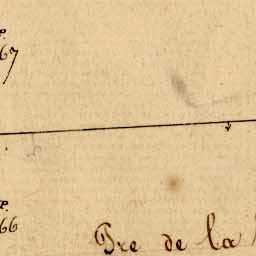 P.
67
P.
66
Pre de la